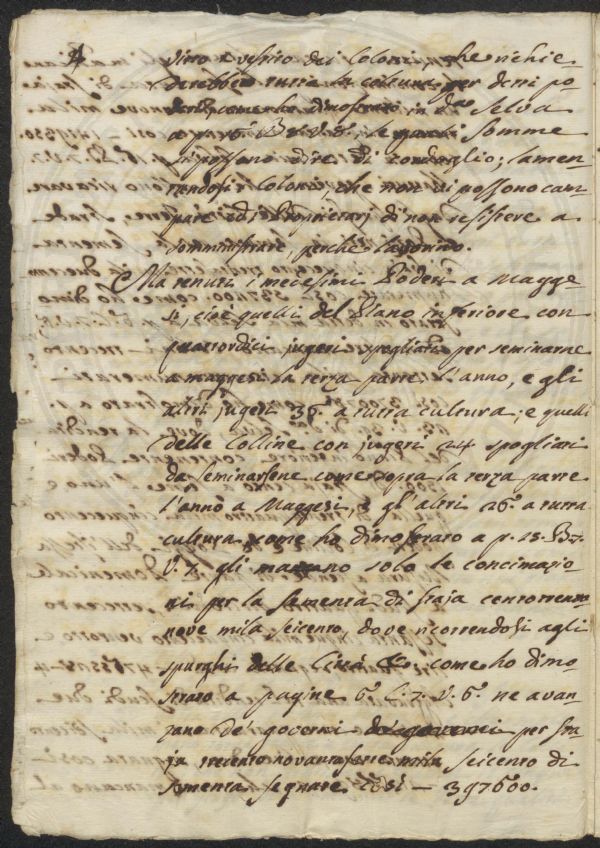 vitto e vestito dei Coloni, che richie-
derebbero tutta la coltura per detti po-
deri, come ho dimostrato in d.ª Selva
a pag. 6. B. 2. V. 8. le quali somme
si possono dire di consiglio; lamen-
tandosi i Coloni, che non si possono cam-
pare, ed i Proprietarj di non resistere a
somministrare, perchè lavorino.
Ma tenuti i medesimi Poderi a Magge-
si, cioè quelli del Piano inferiore con
quattordici jugeri spogliati per seminarne
a maggesi la terza parte l'anno, e gli
altri jugeri 35. a tutta cultura; e quelli
delle Colline con jugeri 24 spogliati
da seminarsene come sopra la terza parte
l'anno a Maggesi, e gl'altri 26. a tutta
cultura come ho dimostrato a p. 15. B. 2.
V. 7. gli mancano solo le concimazio-
ni per la sementa di staja centotrenta
nove mila seicento, dove ricorrendosi agli
spurghi delle Città &c., come ho dimo-
strato a pagine 6. C. 7. V. 6. ne avan-
zano de' governi per sta-
ja trecento novantasette mila seicento di
sementa segnate così — 397600.